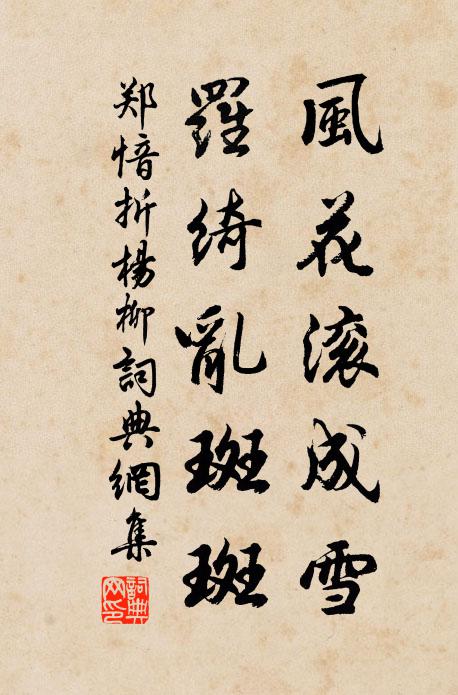 風花滚成雪
羅綺亂斑斑
郑愔折楊柳詞典網集
詞典
网印